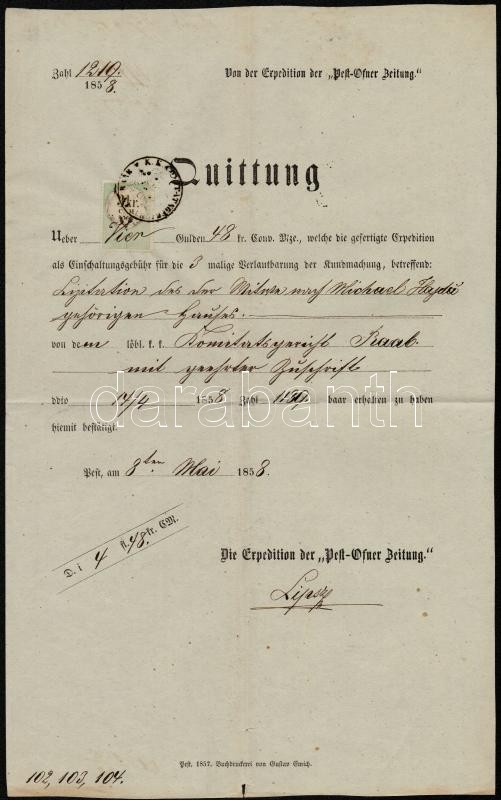 Zahl 1219.
1858.
Von der Expedition der „Pest-Ofner Zeitung.“
Quittung
Ueber Vier Gulden 48 kr. Conv. Mze., welche die gefertigte Expedition
als Einschaltungsgebühr für die 3 malige Verlautbarung der Kundmachung, betreffend:
Lizitation des der Witwe nach Michael Hajdu
gehörigen Hauses.
von dem löbl. k. k. Komitatsgericht Raab
mit geehrter Zuschrift
ddto 17/4 1858 Zahl 1189. baar erhalten zu haben
hiemit bestätigt.
darabanth
Pest, am 8ten Mai 1858.
D. i 4 fl. 48. kr. CM.
Die Expedition der „Pest-Ofner Zeitung.“
Pest. 1857. Buchdruckerei von Gustav Emich.
102, 103, 104.